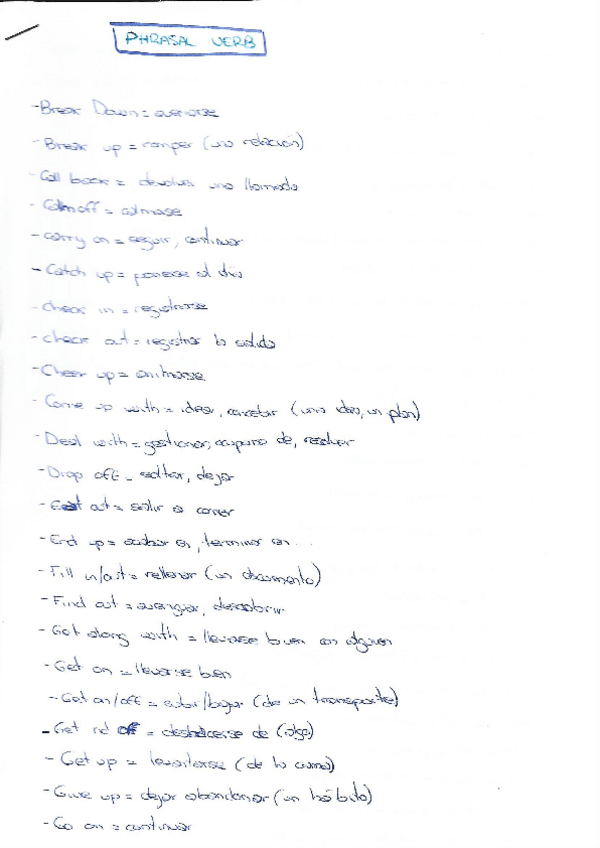 PHRASAL VERB
- Break Down = averiarse
- Break up = romper (una relación)
- Call back = devolver una llamada
- Calm off = calmarse
- Carry on = seguir, continuar
- Catch up = ponerse al día
- Check in = registrarse
- Check out = registrar la salida
- Cheer up = animarse
- Come up with = idear, (una idea, un plan)
- Deal with = gestionar, ocuparse de, resolver
- Drop off - soltar, dejar
- Eat out = salir a comer
- End up = acabar en, terminar en...
- Fill in/out = rellenar (un documento)
- Find out = averiguar, descubrir
- Get along with = llevarse bien con alguien
- Get on = llevarse bien
- Get on/off = subir/bajar (de un transporte)
- Get rid off = deshacerse de (algo)
- Get up = levantarse (de la cama)
- Give up = dejar abandonar (un hábito)
- Go on = continuar